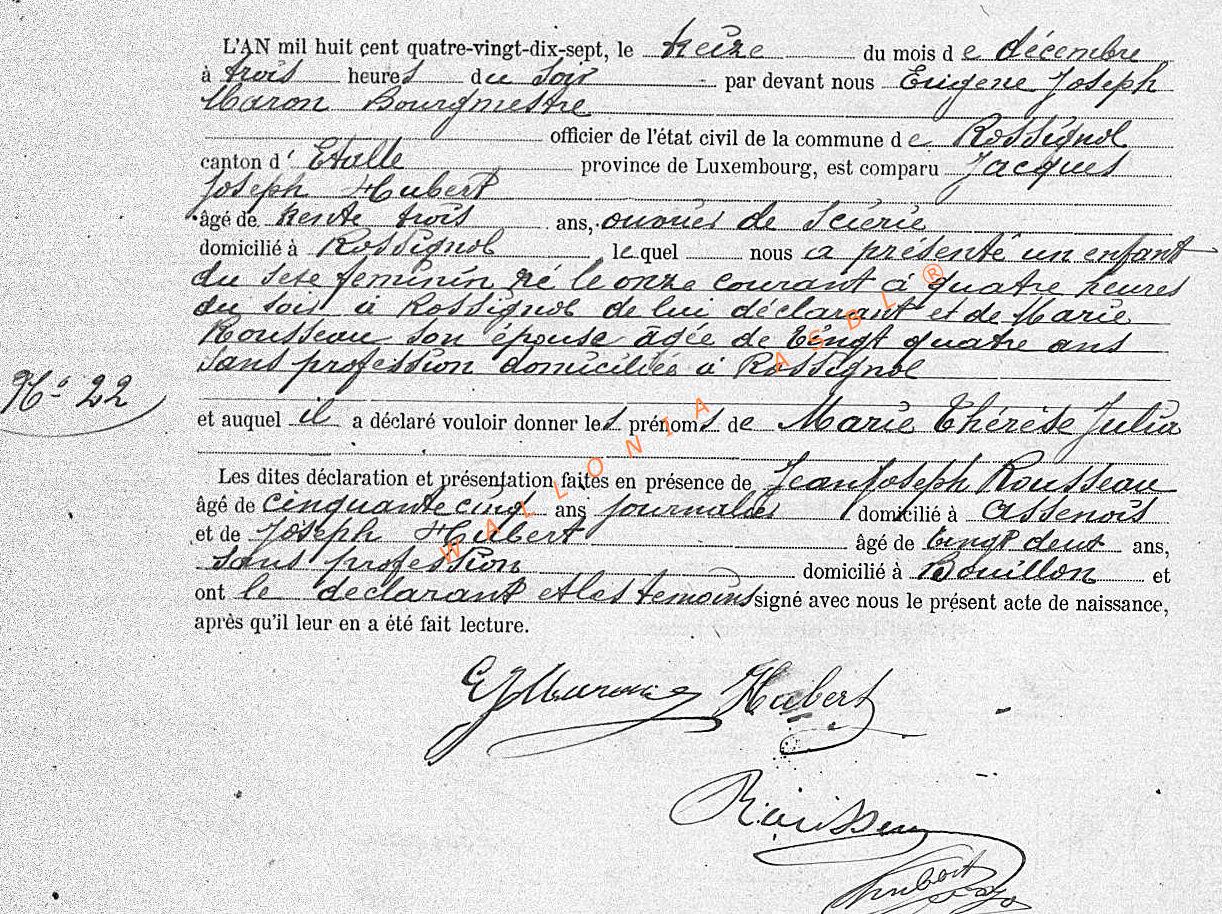 L'AN mil huit cent quatre-vingt-dix-sept, le treize du mois de décembre
à trois heures du soir par devant nous Eugène Joseph
Maron Bourgmestre
officier de l'état civil de la commune de Rossignol
canton d'Etalle province de Luxembourg, est comparu Jacques
Joseph Hubert
âgé de trente trois ans, ouvrier de scierie
domicilié à Rossignol lequel nous a présenté un enfant
du sexe feminin né le onze courant à quatre heures
du soir à Rossignol de lui déclarant et de Marie
Rousseau son épouse âgée de vingt quatre ans
sans profession domiciliée à Rossignol
N° 22
et auquel il a déclaré vouloir donner les prénoms de Marie Thérèse Julia
Les dites déclaration et présentation faites en présence de Jean Joseph Rousseau
âgé de cinquante cinq ans journalier domicilié à Assenois
et de Joseph Hubert âgé de vingt deux ans,
sans profession domicilié à Bouillon et
ont le déclarant et les témoins signé avec nous le présent acte de naissance,
après qu'il leur en a été fait lecture.
EJMaron Hubert
Rousseau
Hubert
WALLONIA ASBL ®